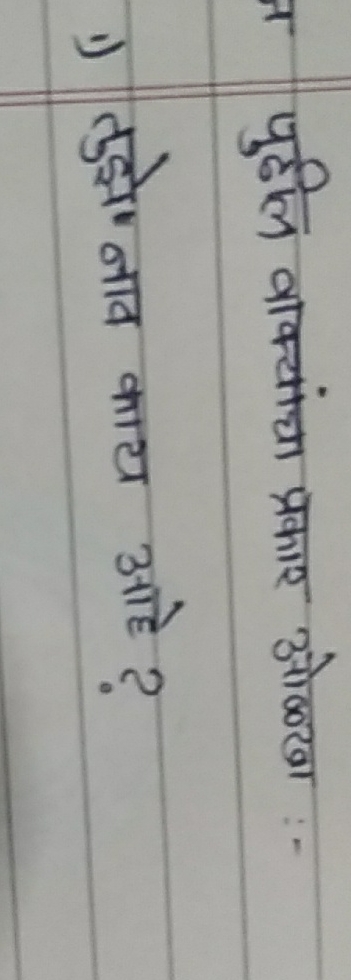 पुढील वाक्यांचा प्रकार ओळखा :-
1) तुझे नाव काय आहे ?